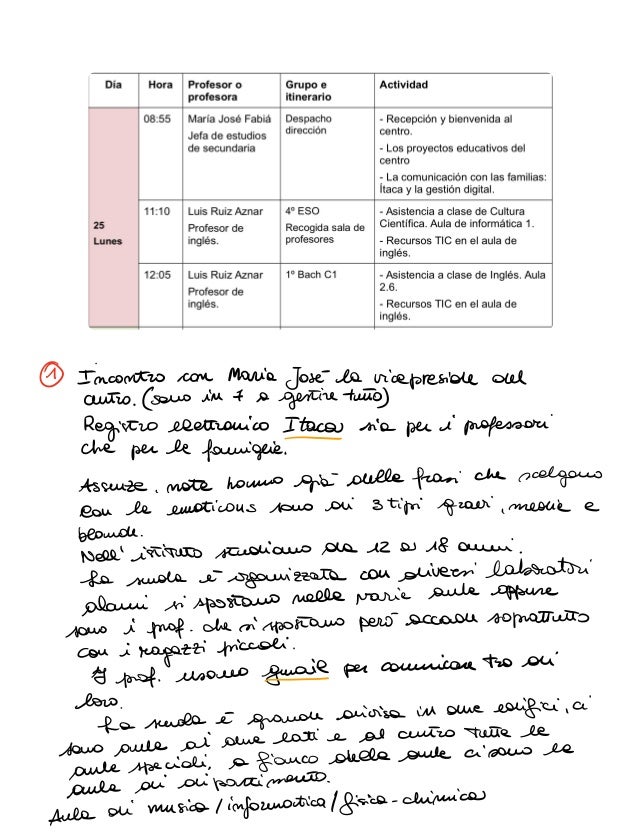 Día Hora Profesor o profesora Grupo e itinerario Actividad
25 Lunes
08:55 María José Fabiá
Jefa de estudios de secundaria
Despacho dirección
- Recepción y bienvenida al centro.
- Los proyectos educativos del centro
- La comunicación con las familias: Ítaca y la gestión digital.
11:10 Luis Ruiz Aznar
Profesor de inglés.
4º ESO
Recogida sala de profesores
- Asistencia a clase de Cultura Científica. Aula de informática 1.
- Recursos TIC en el aula de inglés.
12:05 Luis Ruiz Aznar
Profesor de inglés.
1º Bach C1
- Asistencia a clase de Inglés. Aula 2.6.
- Recursos TIC en el aula de inglés.
1 Incontro con Maria José la vicepreside del
centro. (sono in 7 a gestire tutto)
Registro elettronico Itaca sia per i professori
che per le famiglie.
Assenze, note hanno già delle frasi che scelgono
con le emoticons sono di 3 tipi gravi, medie e
blande.
Nell' istituto studiano da 12 a 18 anni.
La scuola è organizzata con diversi laboratori
alunni si spostano nelle varie aule oppure
sono i prof. che si spostano però accade soprattutto
con i ragazzi piccoli.
I prof. usano gmail per comunicare tra di
loro.
La scuola è grande divisa in due edifici, ci
sono aule ai due lati e al centro tutte le
aule speciali, a fianco delle aule ci sono le
aule di dipartimento.
Aula di musica / informatica / fisica - chimica